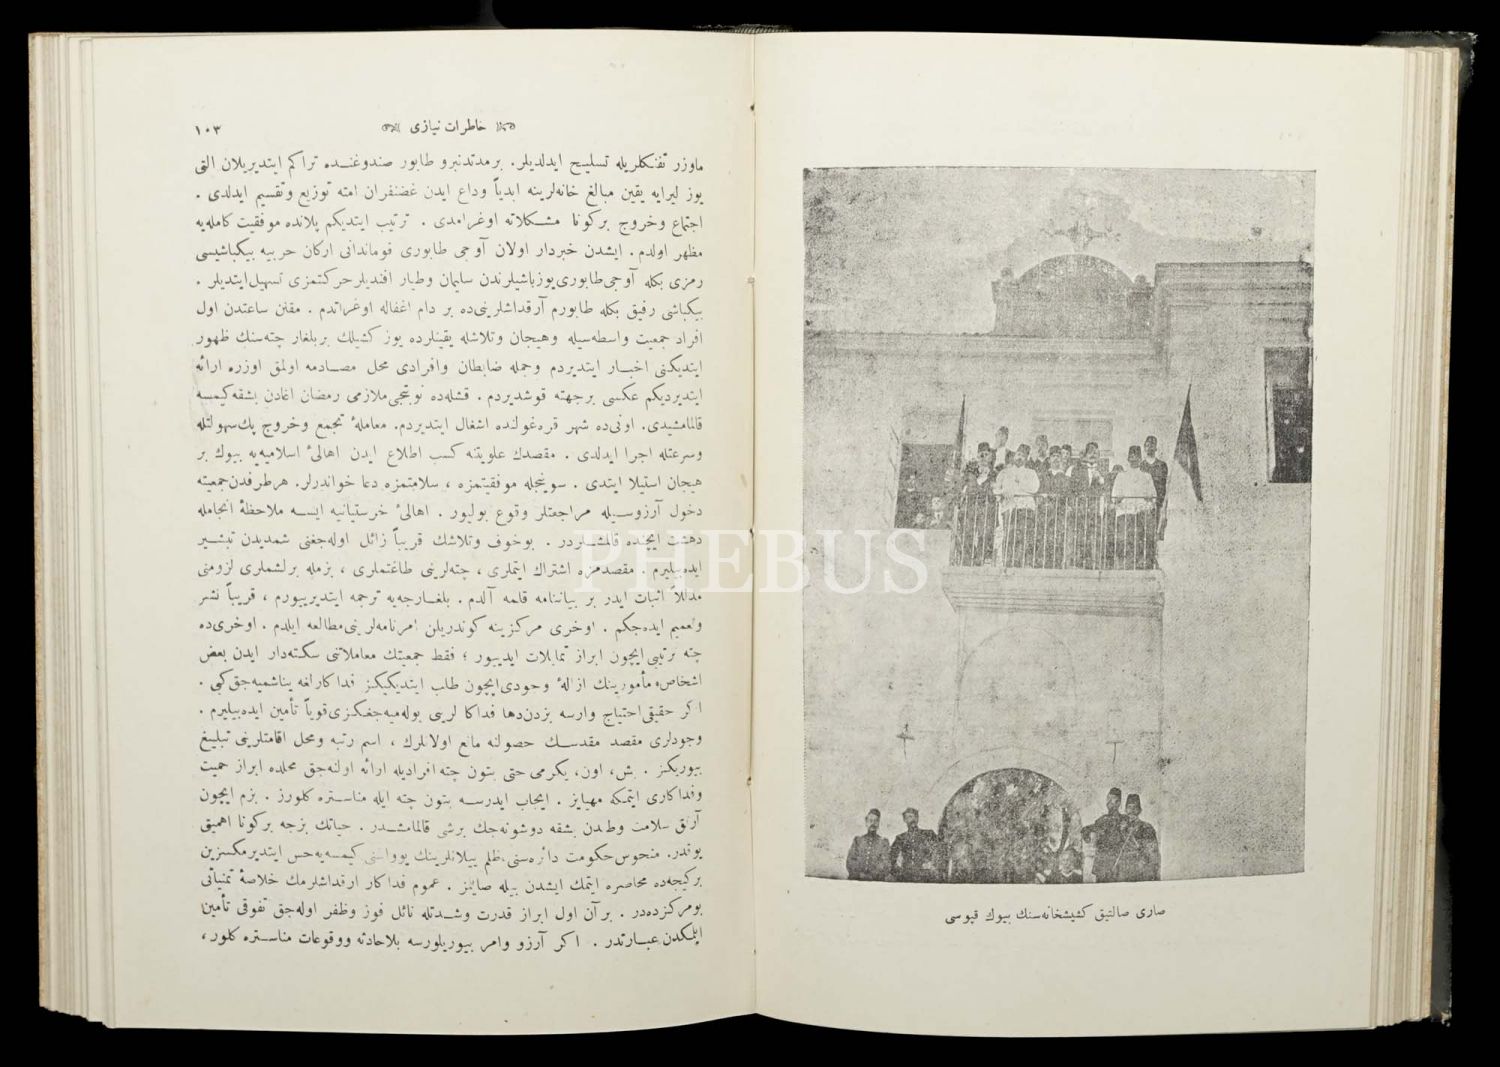 خاطرات نیازی
١٠٣
ماوزر تفنكلریله تسلیح ایدلدیلر. برمدتدنبرو طابور صندوغنده تراكم ایتدیریلان التی
یوز لیرایه یقین مبالغ خانه‌لرینه ابدیاً وداع ایدن غضنفران امته توزیع وتقسیم ایدلدی .
اجتماع وخروج بركونا مشكلاته اوغرامدی . ترتیب ایتدیكم پلانده موفقیت كامله‌یه
مظهر اولدم . ایشدن خبردار اولان آوجی طابوری قوماندانی اركان حربیه بیكباشیسی
رمزی بكله آوجی طابوری یوزباشیلرندن سلیمان وطیار افندیلر حركتمزی تسهیل ایتدیلر .
بیكباشی رفیق بكله طابورم آرقداشلرینی‌ده بر دام اغفاله اوغراتدم . مقنن ساعتدن اول
افراد جمعیت واسطه‌سیله وهیجان وتلاشله یقینلرده یوز كشیلك بر بلغار چته‌سنك ظهور
ایتدیكنی اخبار ایتدیردم وجمله ضابطان وافرادی محل مصادمه اولمق اوزره ارائه
ایتدیردیكم عكسی برجهته قوشدیردم . قشله‌ده نوبتجی ملازمی رمضان اغادن بشقه كیمسه
قالمامشیدی. اونی‌ده شهر قره‌غولنده اشغال ایتدیردم. معاملۀ تجمع وخروج پك سهولتله
وسرعتله اجرا ایدلدی . مقصدك علویتنه كسب اطلاع ایدن اهالئ اسلامیه‌یه بیوك بر
هیجان استیلا ایتدی . سوینجله موفقیتمزه ، سلامتمزه دعا خواندرلر. هرطرفدن جمعیته
دخول آرزوسیله مراجعتلر وقوع بولیور . اهالئ خرستیانیه ایسه ملاحظۀ انجامله
دهشت ایچنده قالمشلردر . بوخوف وتلاشك قریباً زائل اوله‌جغنی شمدیدن تبشیر
ایده‌بیلیرم . مقصدمزه اشتراك ایتملری ، چته‌لرینی طاغتملری ، بزمله برلشملری لزومنی
مدللاً اثبات ایدر بر بیاننامه قلمه آلدم . بلغارجه‌یه ترجمه ایتدیریبورم ، قریباً نشر
وتعمیم ایده‌جكم . اوخری مركزینه كوندریلن امرنامه‌لرینی مطالعه ایلدم . اوخری‌ده
چته ترتیبی ایچون ابراز تمایلات ایدیبور ؛ فقط جمعیتك معاملاتنی سكته‌دار ایدن بعض
اشخاص ومأمورینك ازالۀ وجودی ایچون طلب ایتدیكیكز فداكارلغه یناشمیه‌جق كبی .
اكر حقیقی احتیاج وارسه بزدن‌دها فداكارلرینی بوله‌میه‌جغكزی قویاً تأمین ایده‌بیلیرم .
وجودلری مقصد مقدسك حصولنه مانع اولانلرك ، اسم رتبه ومحل اقامتلرینی تبلیغ
بیوریكز . بش، اون، یكرمی حتی بتون چته افرادیله ارائه اولنه‌جق محلده ابراز حمیت
وفداكاری ایتمكه مهیایز . ایجاب ایدرسه بتون چته ایله مناستره كلورز . بزم ایچون
آرتق سلامت وطندن بشقه دوشونه‌جك برشی قالمامشدر . حیاتك بزجه بركونا اهمیتی
یوقدر. منحوس حكومت دائره‌سنی ، ظلم ییلانلرینك یوواسنی كیمسه‌یه حس ایتدیرمكسزین
بركیجه‌ده محاصره ایتمك ایشدن بیله صایلمز . عموم فداكار ارقداشلرمك خلاصۀ تمنیاتی
بومركزده‌در . برآن اول ابراز قدرت وشدتله نائل فوز وظفر اوله‌جق تفوقی تأمین
ایلمكدن عبارتدر . اكر آرزو وامر بیوریلورسه بلاحادثه ووقوعات مناستره كلور ،
صاری صالتیق كشیشخانه‌سنك بیوك قپوسی
PHEBUS